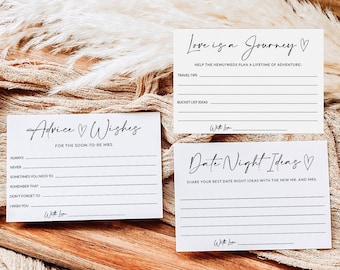 Love is a Journey
HELP THE HEMLYWEDS PLAN A LIFETIME OF ADVENTURE.
TRAVEL TIPS
BUCKET LIST IDEAS
With Love
Advice & Wishes
FOR THE SOON-TO-BE MRS.
ALWAYS
NEVER
SOMETIMES YOU NEED TO
REMEMBER THAT
DON'T FORGET TO
I WISH YOU
With Love
Date Night Ideas
SHARE YOUR BEST DATE NIGHT IDEAS WITH THE NEW MR. AND MRS.
With Love